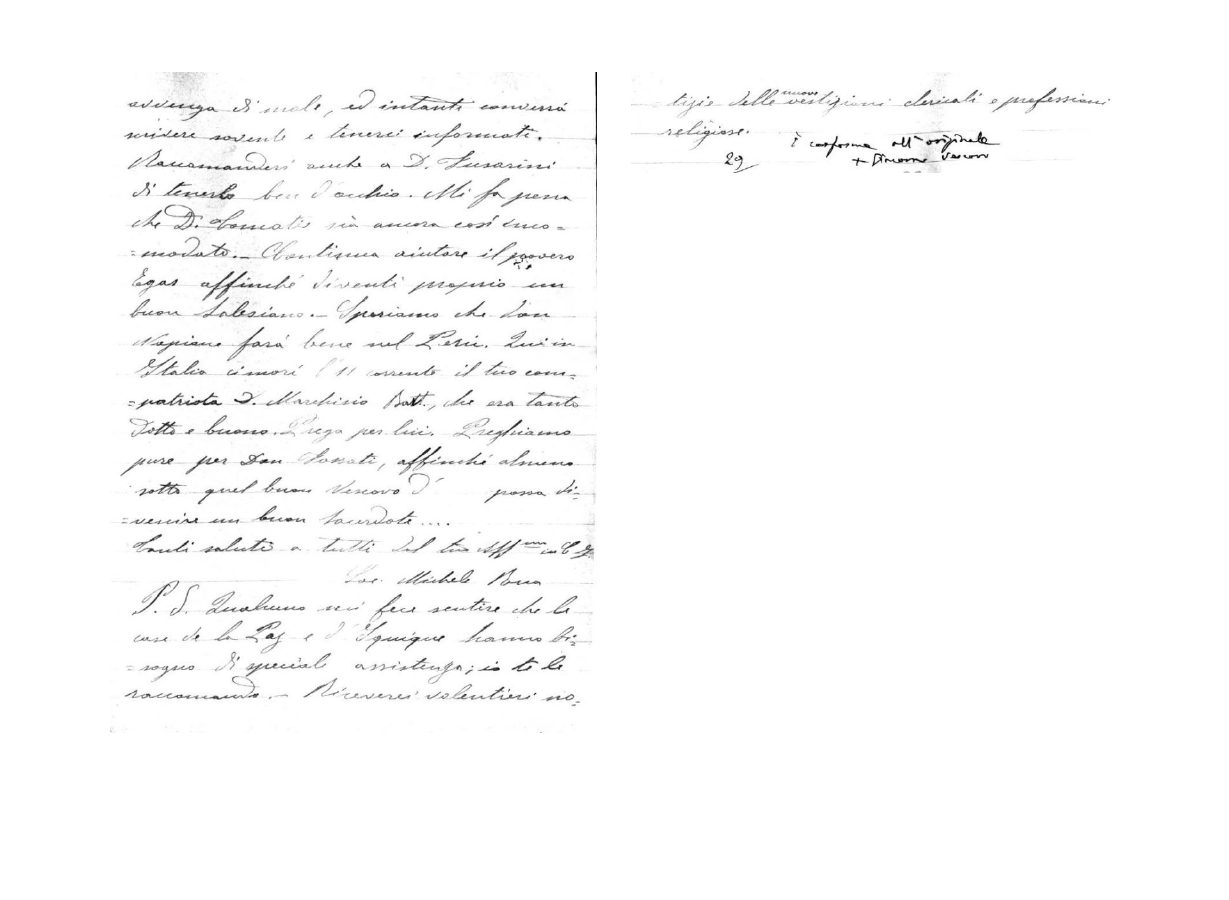 avvenga di male, ed intanto converrà
scrivere sovente e tenerci informati.
Raccomanderei anche a D. Fusarini
di tenerlo ben d'occhio. Mi fa pena
che D. Comatis sia ancora così inco=
=modato. _ Continua aiutare il povero
Egas affinché diventi proprio un
buon Salesiano. _ Speriamo che Don
Rapiano farà bene nel Perù. Qui in
Italia ci morì l'11 corrente il tuo com=
=patriota D. Marchisio Batt., che era tanto
dotto e buono. Prega per lui. Preghiamo
pure per Don affinché almeno
sotto quel buon Vescovo d' possa di=
=venire un buon Sacerdote....
Tanti saluti a tutti dal tuo Aff.mo in C. J.
Sac. Michele Rua
P. S. Qualcuno mi fece sentire che le
case de la Paz e d'Iquique hanno bi=
=sogno di speciale assistenza; io te le
raccomando. _ Riceverei volentieri no=
tizie delle nuove vestizioni clericali e professioni
religiose.
È conforme all'originale
29
+ Vescovo